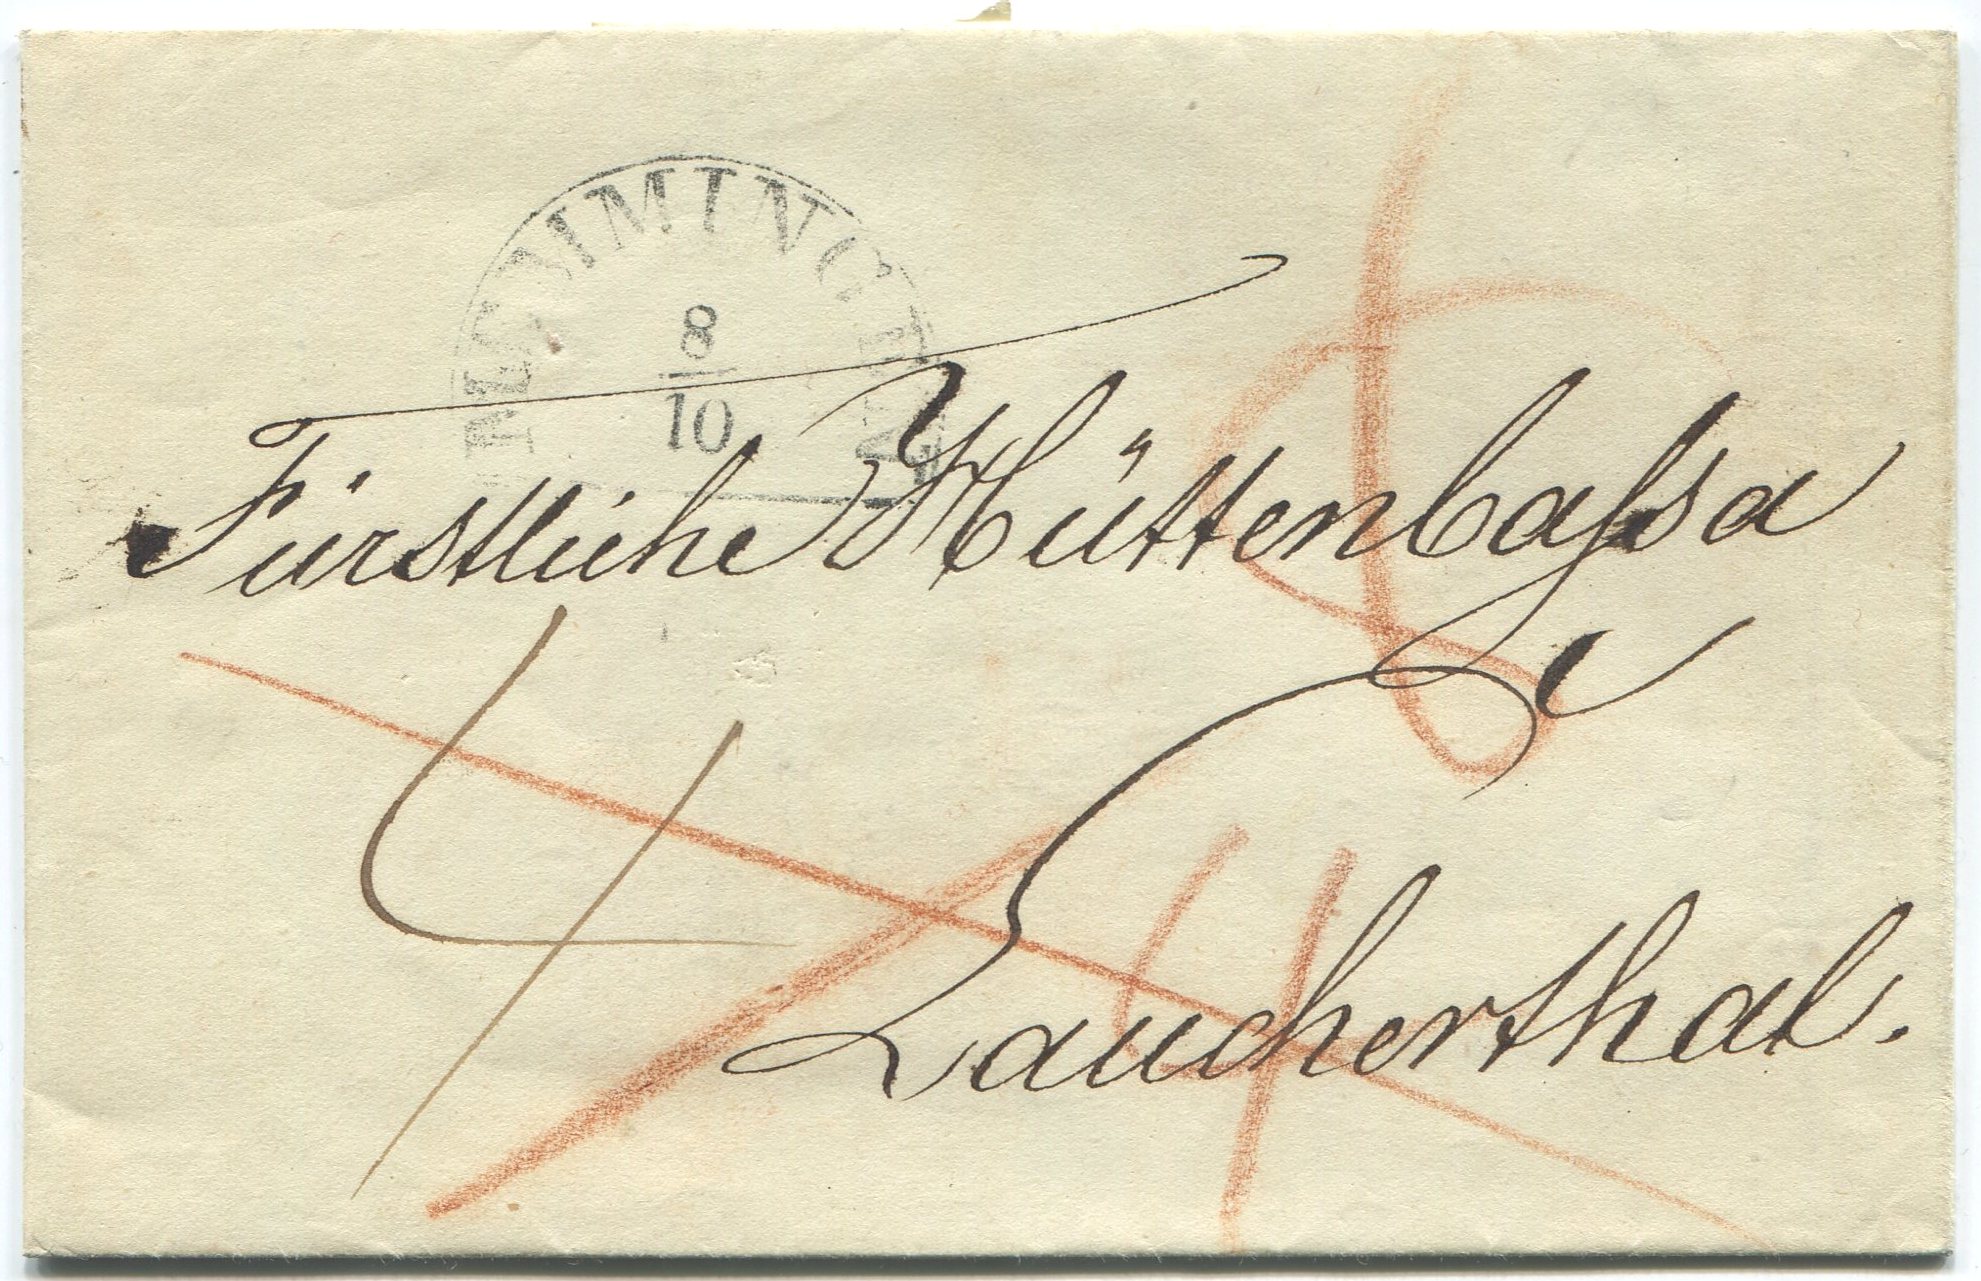 MEMMINGEN
8
10
Fürstliche Hüttencassa
4
Laucherthal.
4